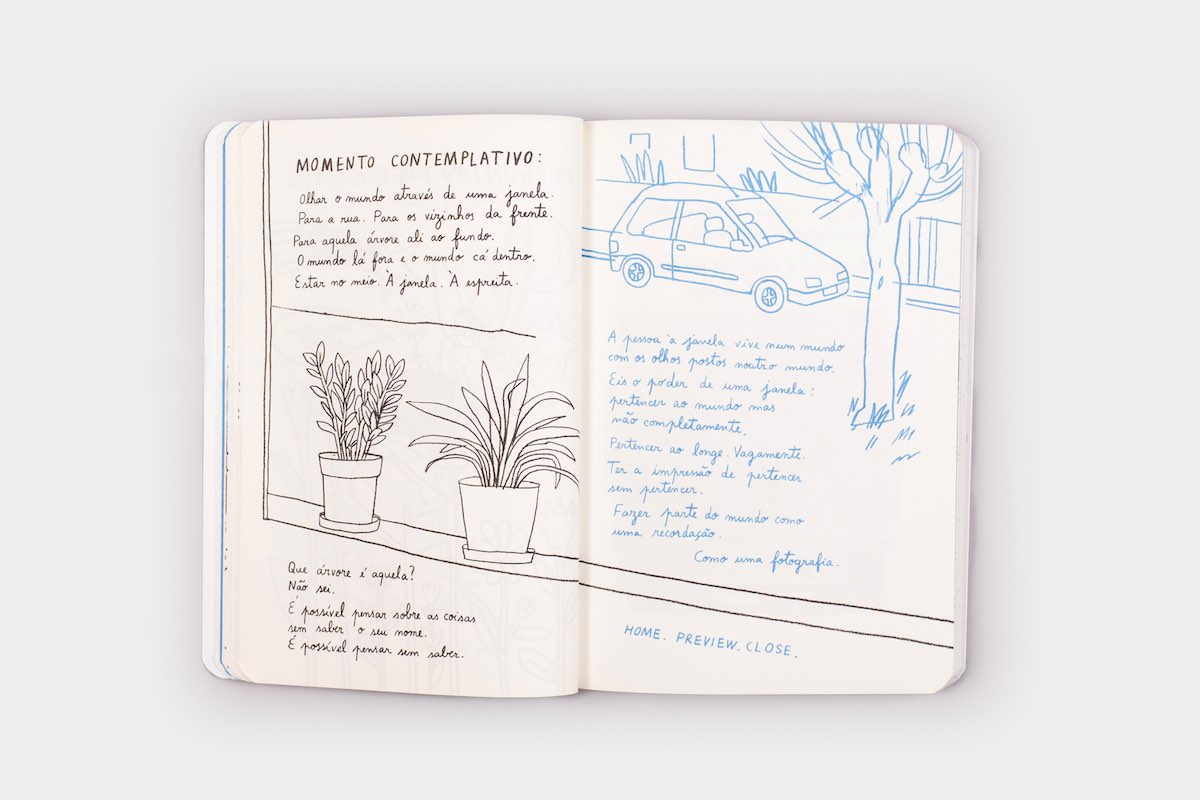 MOMENTO CONTEMPLATIVO:
Olhar o mundo através de uma janela.
Para a rua. Para os vizinhos da frente.
Para aquela árvore ali ao fundo.
O mundo lá fora e o mundo cá dentro.
Estar no meio. À janela. À espreita.
Que árvore é aquela?
Não sei.
É possível pensar sobre as coisas
sem saber o seu nome.
É possível pensar sem saber.
A pessoa à janela vive num mundo
com os olhos postos noutro mundo.
Eis o poder de uma janela:
pertencer ao mundo mas
não completamente.
Pertencer ao longe. Vagamente.
Ter a impressão de pertencer
sem pertencer.
Fazer parte do mundo como
uma recordação.
Como uma fotografia.
HOME. PREVIEW. CLOSE.